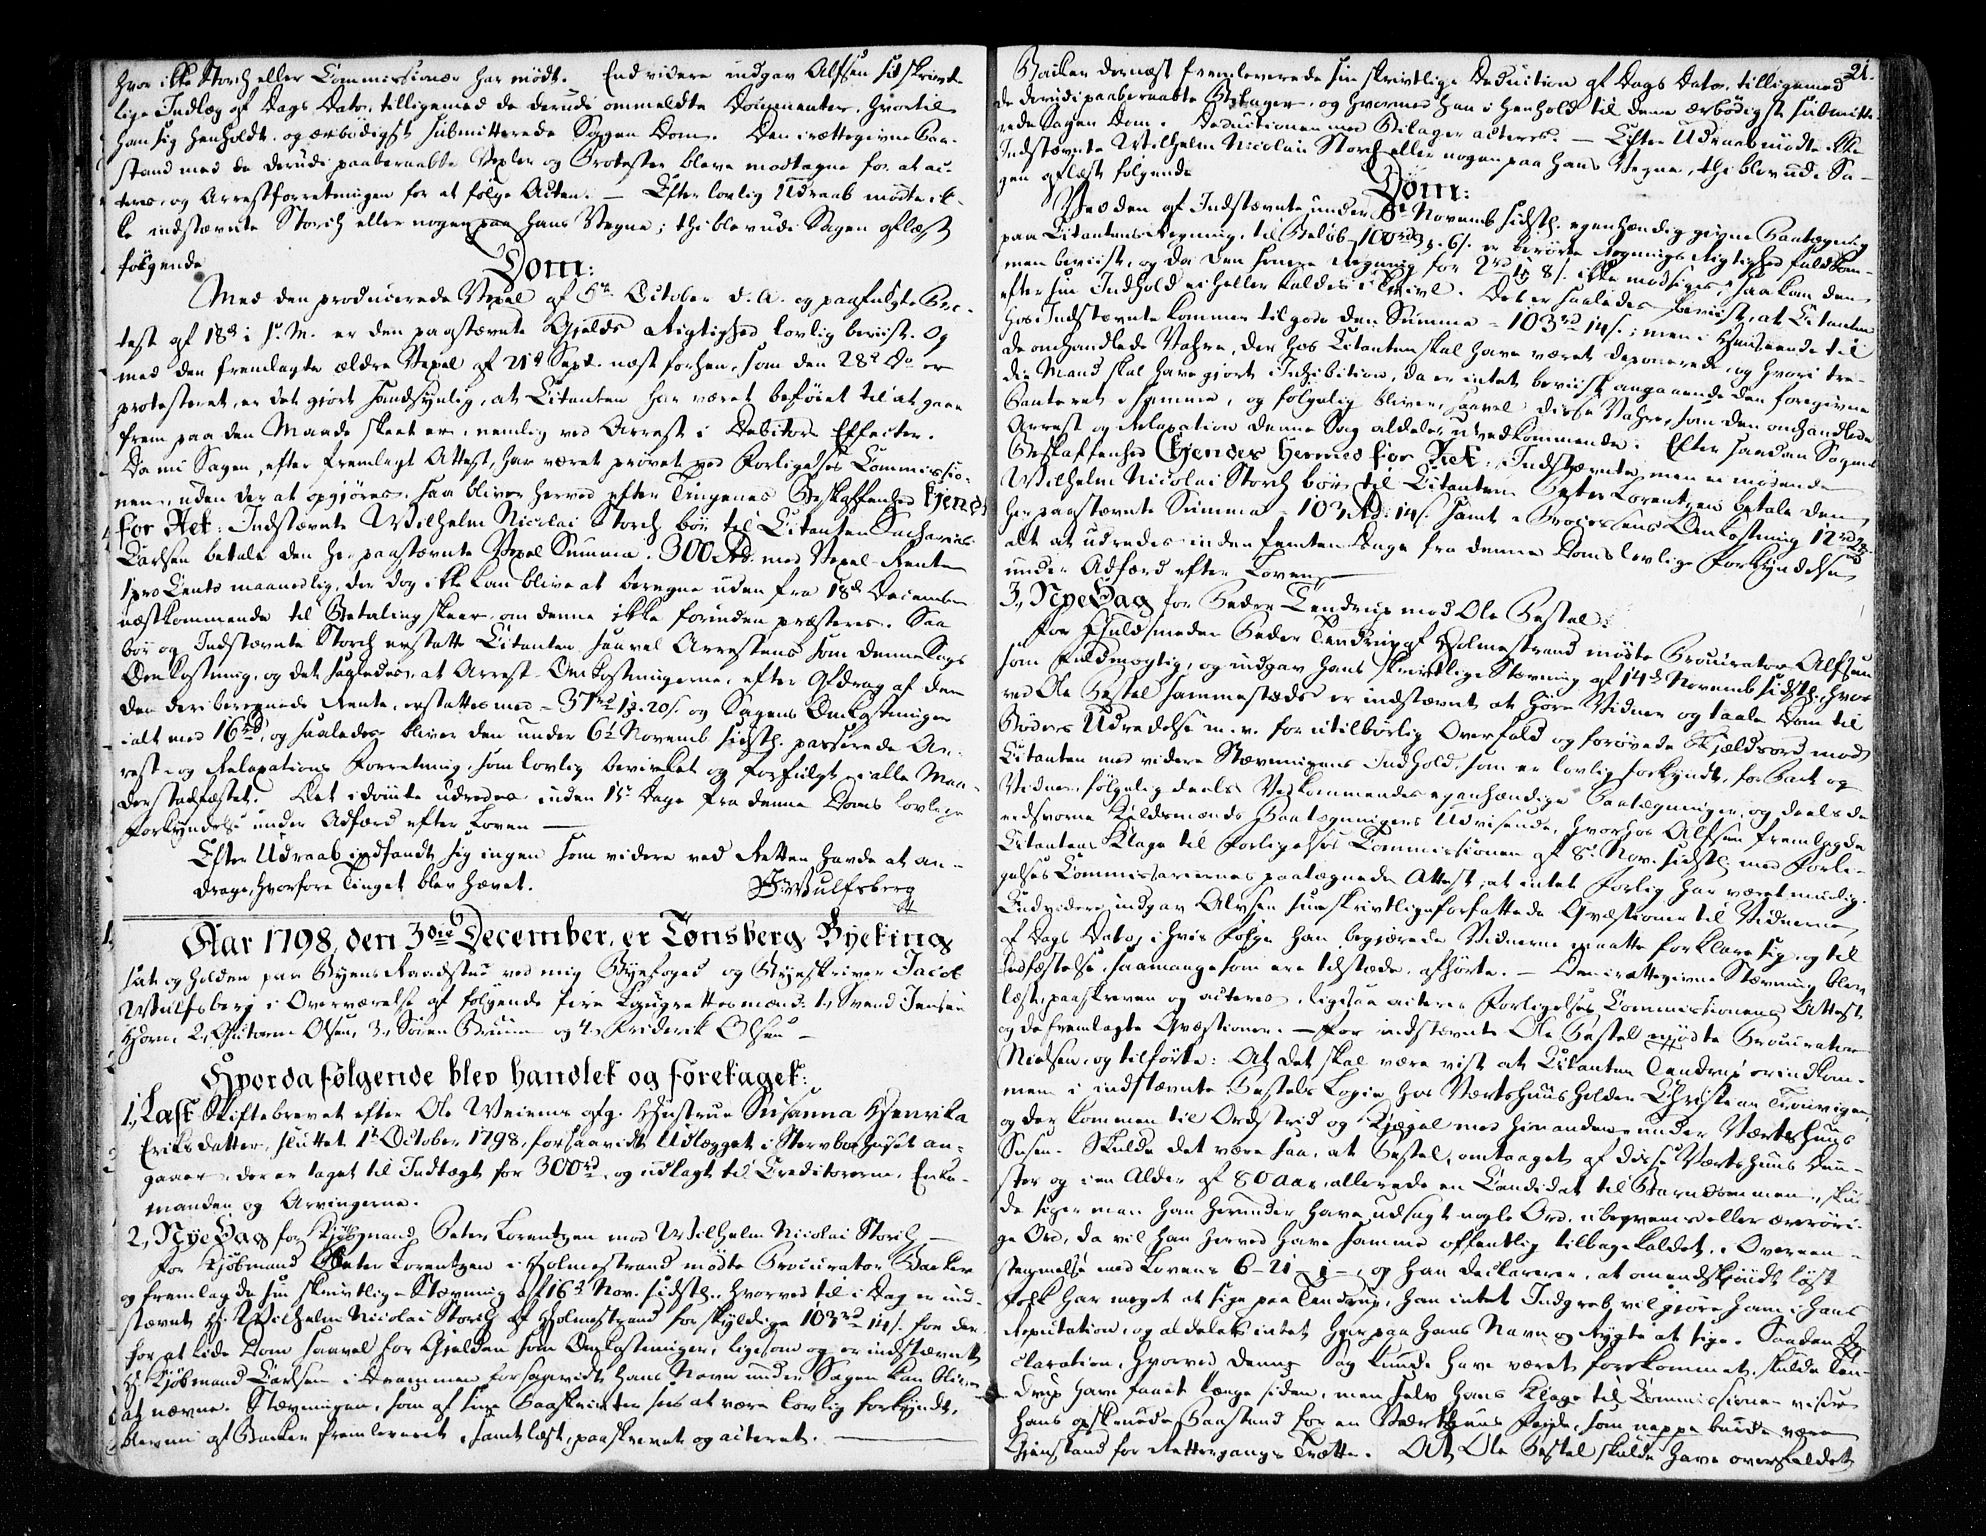 hvor ikke Storch eller Commissionær har mødt. End videre indgav Alfsen sid skrivt-
lige Indlæg af Dags Dato, tilligemed de derudi ommeldte Documenter, hvortil
han sig henholdt, og ærbødigst submitterede Sagen Dom. Den i rettegivne Paa-
stand med de derudi paaberaabte Vexler og Protester bleve modtagne for at ac-
teres, og Arrestforretningen for at følge Acten. — Efter lovlig Udraab mødte ik-
ke indstævnte Storch eller nogen paa hans Vegne; thi blev udi Sagen aflæst
følgende
Dom:
Med den producerede Vexel af 5te October d. A. og paafulgte Pro-
test af 18de i s. M. er den paastævnte Gjelds Rigtighed lovlig beviist. Og
med den fremlagte ældre Vexel af 21de Sept. næst forhen, som den 28de Do er
protesteret, er det gjort sandsynlig, at Citanten har været beføiet til at gaae
frem paa den Maade skeet er, nemlig ved Arrest i Debitors Effecter.
Da nu Sagen, efter fremlagt Attest, har været prøvet ved Forligelses Commissio-
nen, uden der at opgjøres, saa bliver herved efter Tingenes Beskaffenhed kjendt
for Ret: Indstævnte Wilhelm Nicolai Storch bør til Citanten Zacharias
Carlsen betale den her paastævnte Vexel Summa 300 Rd. med Vexel-Renter
1 pro Cents maanedlig, der dog ikke kan blive at beregne uden fra 18de December
næstkommende til Betaling skeer, om denne ikke forinden præsteres. Saa
bør og Indstævnte Storch erstatte Citanten saavel Arrestens som denne Sags
Omkostning, og det saaledes, at Arrest-Omkostningerne, efter Afdrag af den
den deri beregnede Rente, erstattes med 37 rd 1 ℔ 20 s. og Sagens Omkostninger
i alt med 16 rd, og saaledes bliver den under 6te Novemb. sidstl. passerede Ar-
rest- og Relaxations Forretning, som lovlig bevirket og forfulgt i alle Maa-
der stadfæstet. Det idømte udredes inden 15 Dage fra denne Doms lovlige
Forkyndelse under Adfærd efter Loven —
Efter Udraab indfandt sig ingen som videre ved Retten havde at an-
drage, hvorfore Tinget blev hævet. J. Wulfsberg
Aar 1798, den 3die December, er Tønsberg Byeting
sat og holden paa Byens Raadstue ved mig Byefoged og Byeskriver Jacob
Wulfsberg i Overværelse af følgende fire Laugrettesmænd: 1, Svend Jensen
Horn, 2, Guttorm Olsen, 3, Søren Bruun og 4, Friderik Olsen —
Hvorda følgende blev handlet og foretaget:
1, Læst Skiftebrevet efter Ole Weiems afg. Hustrue Susanna Henrika
Eriksdatter, sluttet 1te October 1798, forsaavidt Udlægget i Stervboe huset an-
gaaer, der er taget til Indtægt for 300 rd, og udlagt til Creditorerne, Enke-
manden og Arvingerne.
2, Nye Sag for Kjøbmand Peter Lorentzen mod Wilhelm Nicolai Storch —
For Kjøbmand Peter Lorentzen i Holmestrand mødte Procurator Backer
og fremlagde sin skrivtlige Stævning af 16de Nov. sidstl., hvorved til i Dag er ind-
stævnt Hr. Wilhelm Nicolai Storch af Holmestrand for skyldige 103 rd 14 s. for der-
for at lide Dom saavel for Gjelden som Omkostninger, ligesom og er indstævnet
Hr. Kjøbmand Carlsen i Drammen forsaavidt hans Navn under Sagen kan blive
at nævne. Stævningen, som af sine Paaskrivter sees at være lovlig forkyndt,
blev nu af Backer fremleveret, samt læst, paaskrevet og acteret. —
21.
Backer dernæst fremleverede sin skrivtlige Deduction af Dags Dato, tilligemed
de derudi paaberaabte Bilager, og hvormed han i henhold til denne ærbødigst submitte-
rede Sagen Dom. Deductionen med Bilager acteres. — Efter Udraab mødte ikke
Indstævnte Wilhelm Nicolai Storch eller nogen paa hans Vegne, thi blev udi Sa-
gen aflæst følgende
Dom:
Ved den af Indstævnte under 8de Novemb. sidstl. egenhændig givne Paategning
paa Citantens Regning, til Beløb 100 rd 3 ℔ 6 s. er berørte Regnings Rigtighed fuldkom-
men beviist, og da den senere Regning for 2 rd 1 ℔ 8 s. ikke modsiges, saa kan den
efter sin Indhold ei heller kaldes i Tvivl. Det er saaledes beviist, at Citanten
hos Indstævnte kommer tilgode den Summa 103 rd 14 s.; men i Henseende til
de omhandlede Vahre, der hos Citanten skal have været deponerede, og hvori tre-
die Mand skal have gjort Inhibition, da er intet beviist angaaende den foregivne
Panteret i samme, og følgelig bliver saavel disse Vahre, som den omhandlede
Arrest og Relaxation denne Sag aldeles uvedkommende. Efter saadan Sagens
Beskaffenhed Kjendes hermed for Ret: Indstævnte, men ei mødende
Wilhelm Nicolai Storch bør til Citanten Peter Lorentzen betale den
her paastævnte Summa 103 Rd. 14 s. samt Processens Omkostning 12 rd
alt at udredes inden femten Dage fra denne Doms lovlige Forkyndelse
under Adfærd efter Loven. —
3, Nye Sag for Peder Tendrup mod Ole Gestel.
For Guldsmeden Peder Tendrup af Holmestrand mødte Procurator Alfsen
som Fuldmægtig, og indgav hans skrivtlige Stævning af 14de Novemb. sidstl., hvor-
ved Ole Gestel sammestæds er indstævnt at høre Vidner og taale Dom til
Bøders Udredelse m. v. for utilbørlig Overfald og forøvede Skjældsord mod
Citanten med videre Stævningens Indhold, som er lovlig forkyndt, for Part og
Vidner, følgelig deels Vedkommendes egenhændige Paategninger, og deels de
eedsvorne Kaldsmænds Paategningers Udvisende, hvorhos Alfsen fremlagde
Citantens Klage til Forligelses Commissionen af 8de Nov. sidstl. med Forli-
gelses Commissairernes paategnede Attest, at intet Forlig har været muelig.
Endvidere indgav Alfsen sine skrivtlige forfattede Qvæstioner til Vidnerne,
af Dags Dato, i hvis Følge han begjærede Vidnerne maatte forklare sig, og til
Edfæstelse, saamange som ere tilstæde, afhørte. — Den i rettegivne Stævning blev
læst, paaskreven og acteres, ligesaa acteres Forligelses Commissionens Attest
og de fremlagte Qvæstioner. — For indstævnte Ole Gestel mødte Procurator
Nielsen, og tilførte: At det skal være vist at Citanten Tendrup er indkom-
men i indstævnte Gestels Logie hos Værtshuusholder Christian Trouvigen,
og der kommen til Ordstrid og Kjægel med hinanden under Værtshuus
Susen. Skulde det være saa, at Gestel, omtaaget af disse Værtshuus Dun-
ster og i en Alder af 80 Aar, allerede en Candidat til Barndommen, skul-
de siger man han herunder have udsagt nogle Ord, ubeqvemme eller ærerøri-
ge Ord, da vil han herved have samme offentlig tilbagekaldet, i Overeen-
stemmelse med Lovens 6–21–1–, og han declarerer, at omendskjøndt løst
Folk har meget at sige paa Tendrup, han intet Indgreb vil gjøre ham i hans
Reputation, og aldeles intet har paa hans Navn og Rygte at sige. Saadan De-
claration, hvorved denne Sag kunde have været forekommet, skulde Ten-
drup have faaet længe siden, men selv hans Klage til Commissionen viser
hans opskruede Paastand for en Værtshuus Feide, som neppe burde være
Gjenstand for Rettergangs Trætte. At Ole Gestel skulde have overfaldet